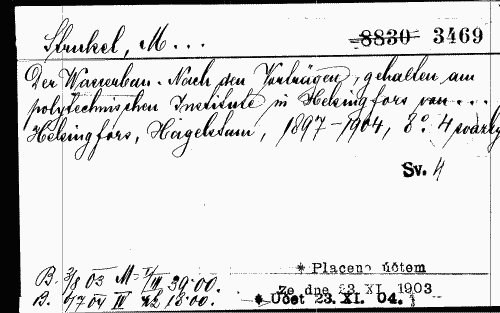 Strukel, M... 8830 3469
Der Wasserbau. Nach den Vorträgen, gehalten am
polytechnischen Institute in Helsingfors von...
Helsingfors, Hagelstam, 1897-1904, 8° 4 svazky
Sv. 4
* Placeno účtem
B. 3/8 03 M I/III 39·00. Ze dne 23 XI. 1903
B. 6/7 04 IV 18·00. * Účet 23. XI. 04.